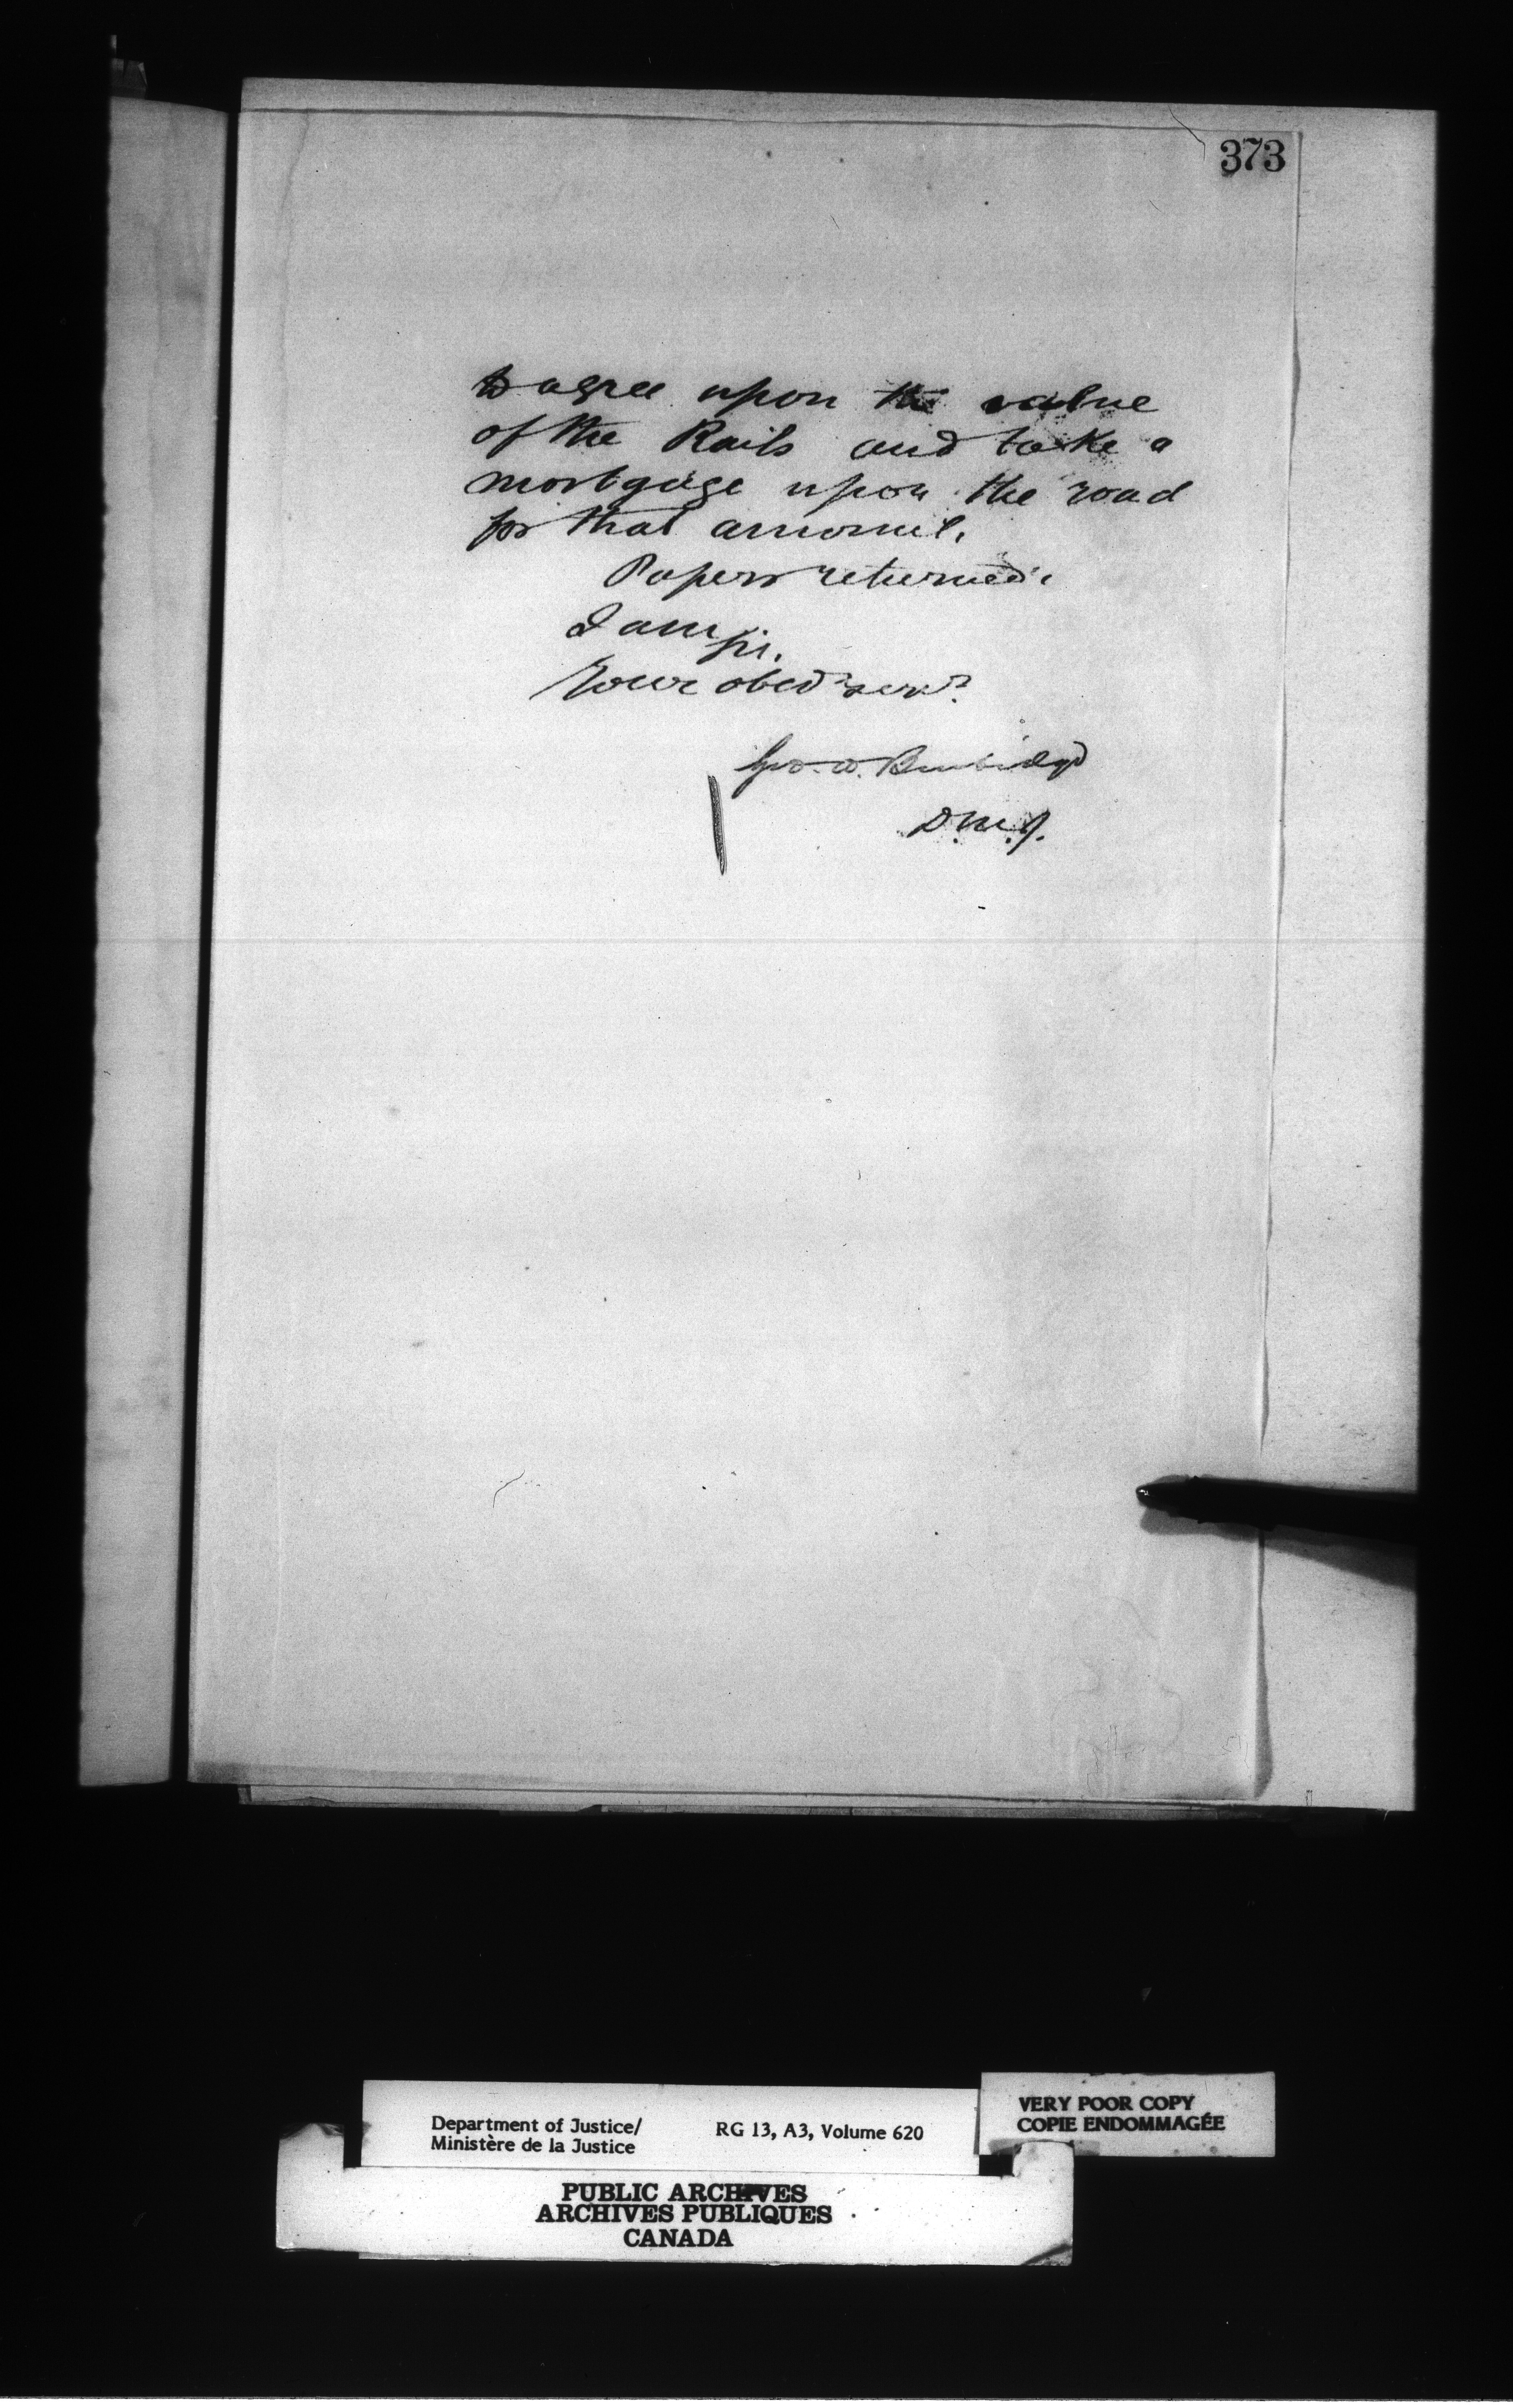 373
to agree upon the value
of the Rails and take a
mortgage upon the road
for that amount.
Papers returned.
I am
Sir,
Your obedt servt
Geo. W. Burbidge
D.M.J.
Department of Justice/
Ministère de la Justice
RG 13, A3, Volume 620
VERY POOR COPY
COPIE ENDOMMAGÉE
PUBLIC ARCHIVES
ARCHIVES PUBLIQUES
CANADA